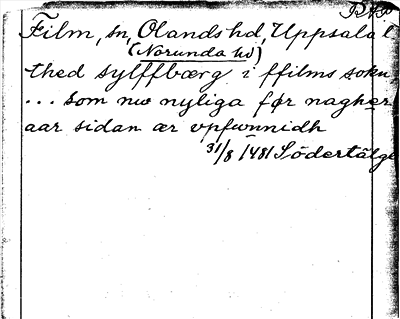 Film, sn, Olands hd, Uppsala l
(Norunda hd)
thed sylffbærg i ffilms sokn,
... som nw nyliga før nagher
aar sidan ær vpfwnnidh
31/8 1481 Södertälge